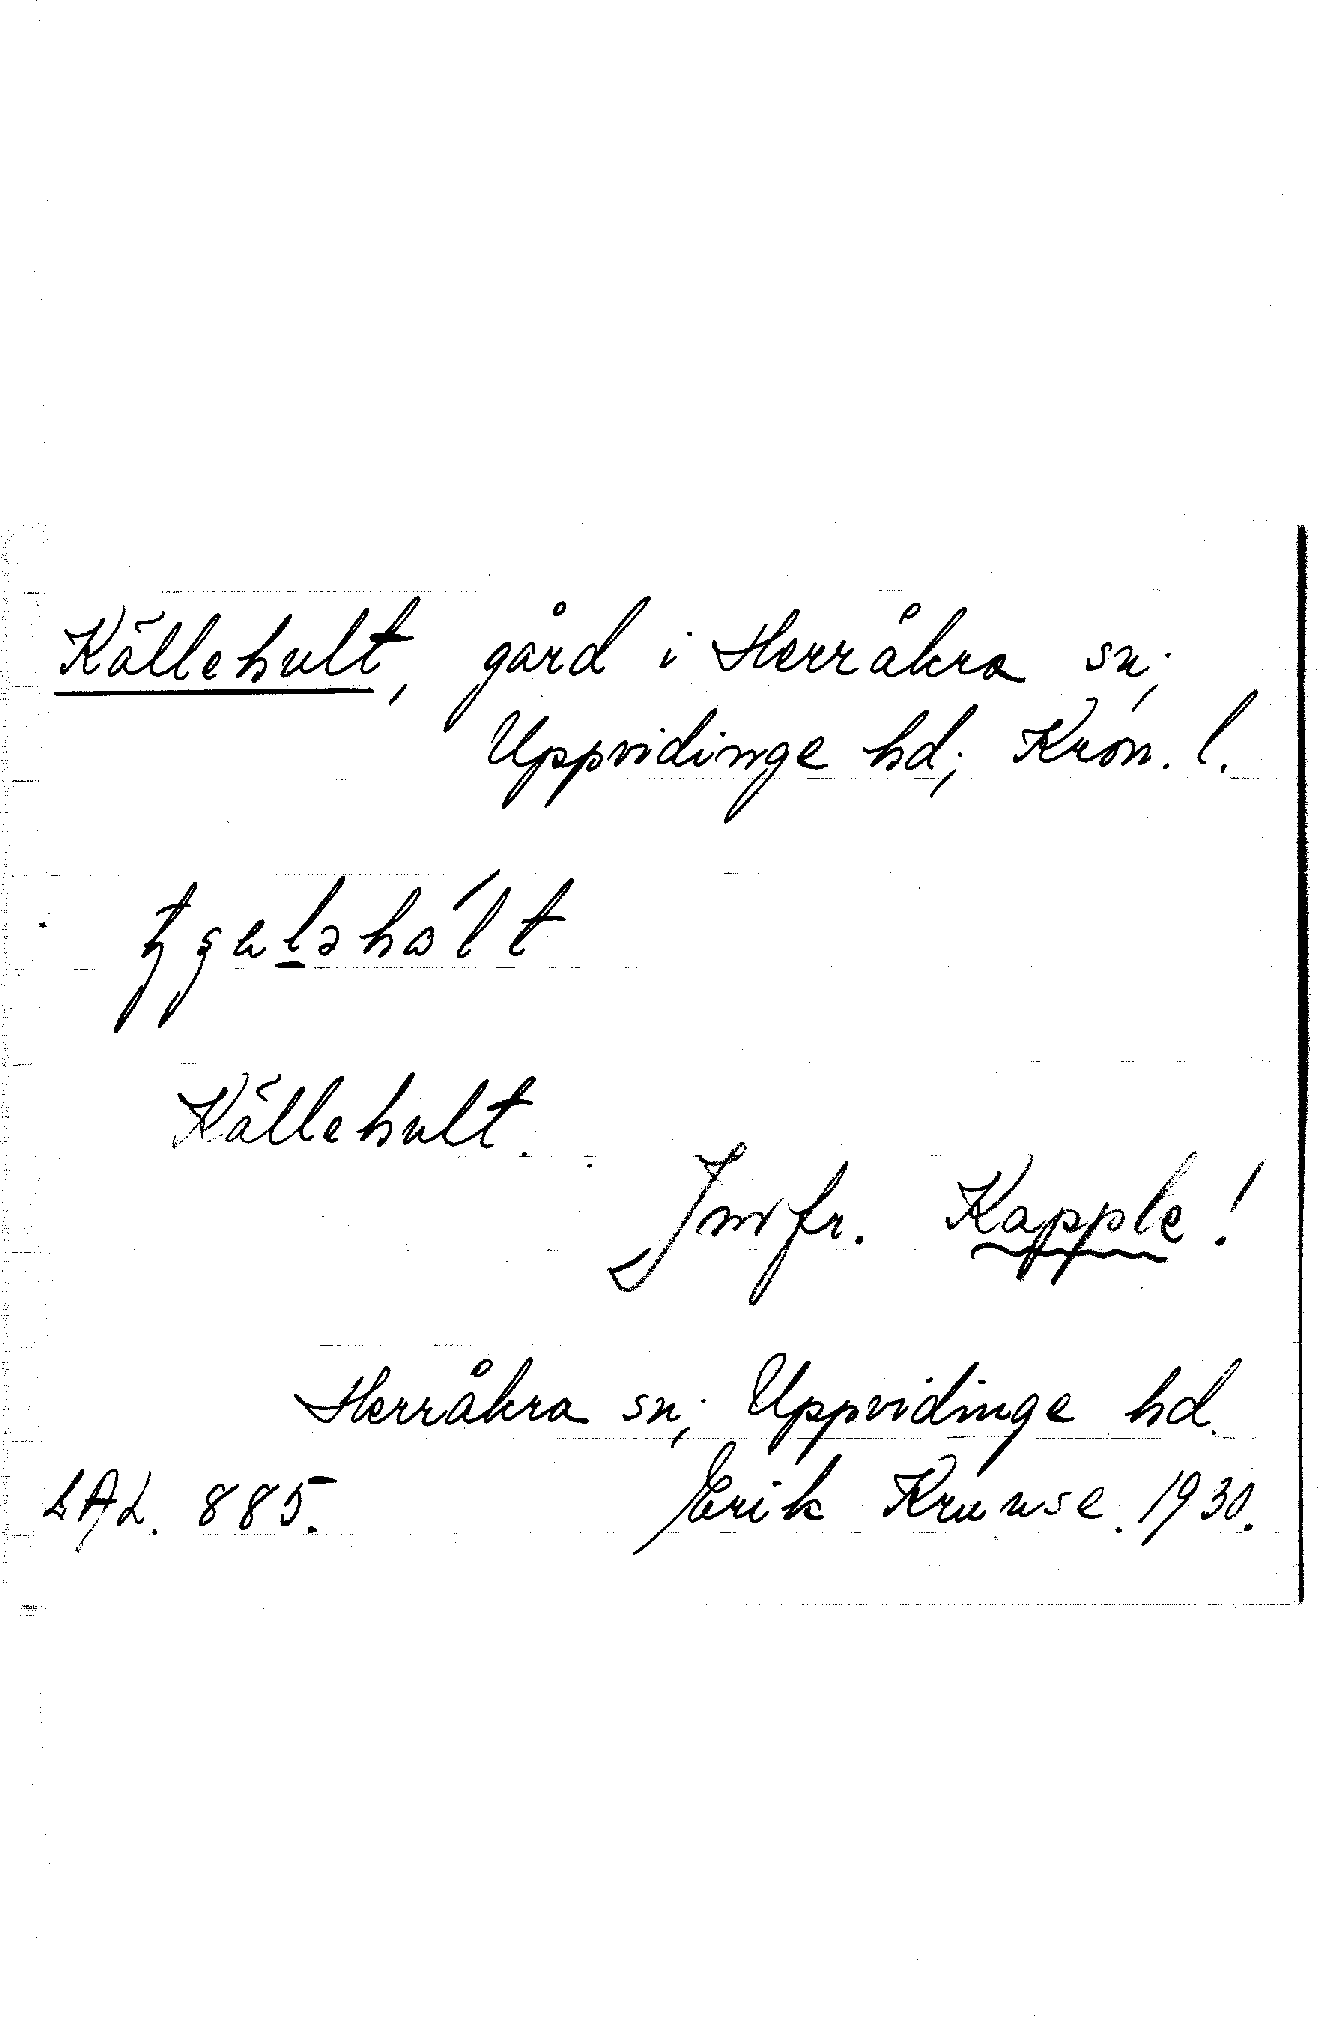 Källehult, gård i Herråkra sn;
Uppvidinge hd; Kron. l.
Källehult.
Jmfr. Kapple!
Herråkra sn; Uppvidinge hd.
LAL. 885. Erik Kruuse. 1930.